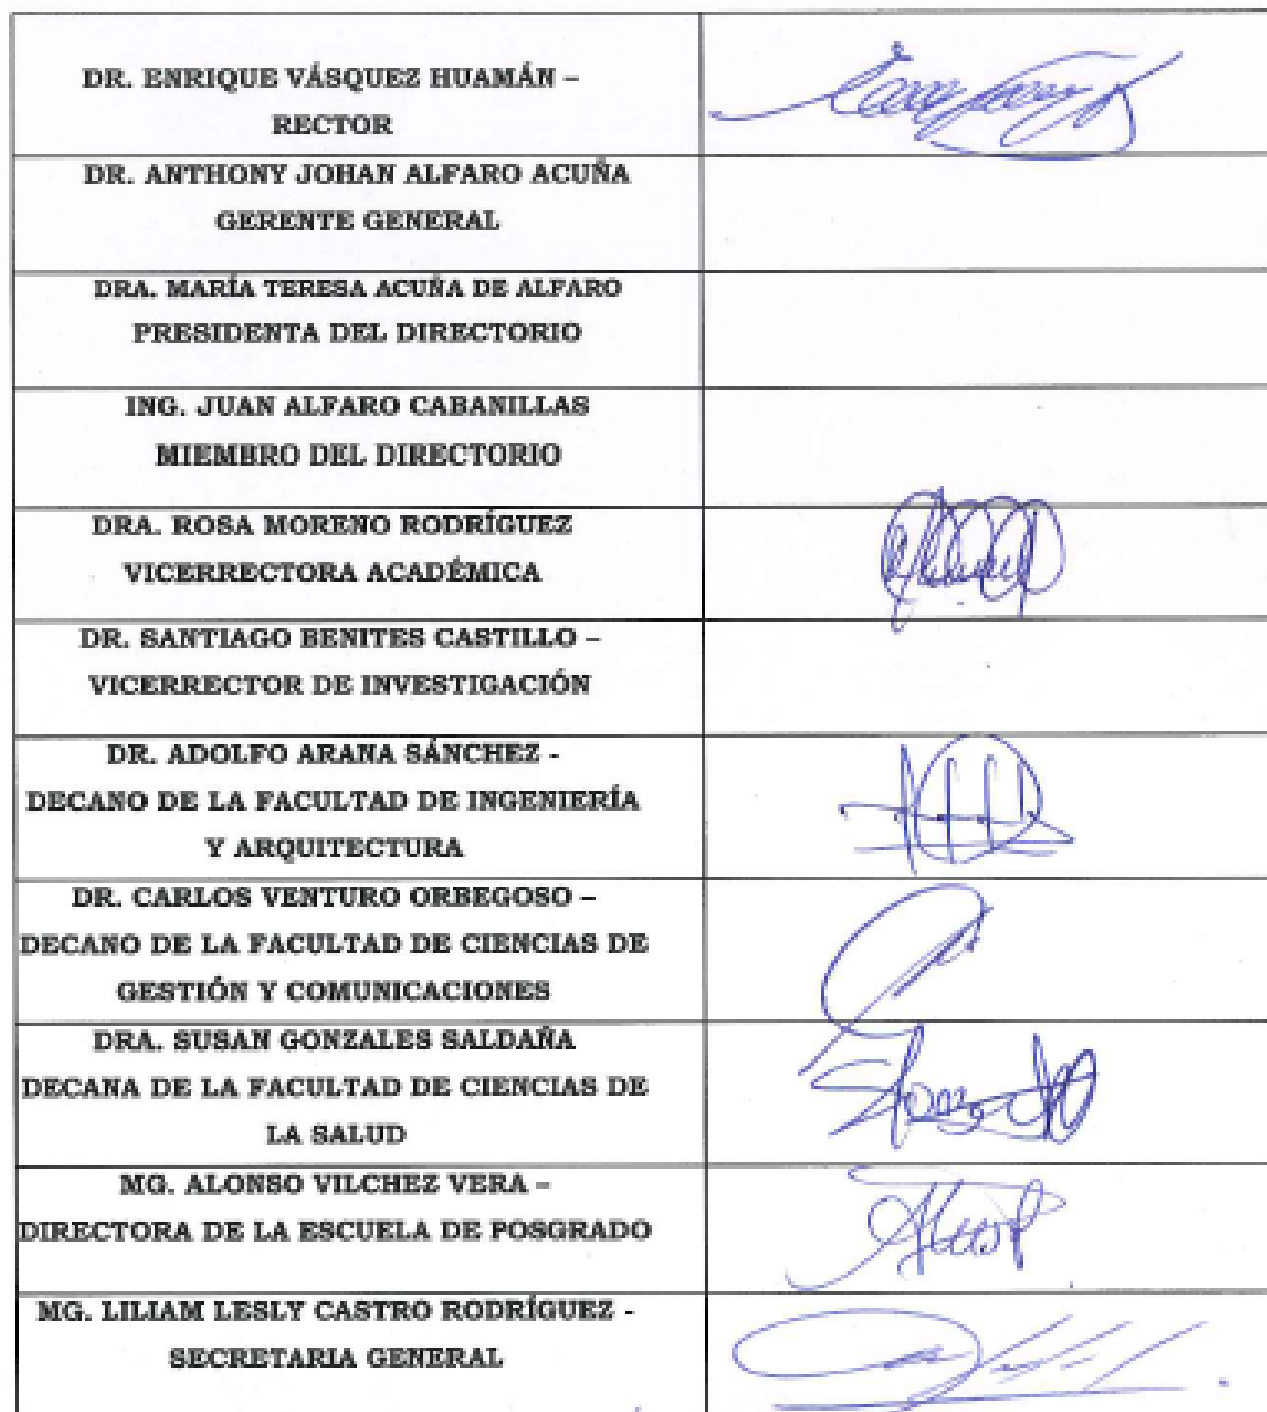 DR. ENRIQUE VÁSQUEZ HUAMÁN –
RECTOR
DR. ANTHONY JOHAN ALFARO ACUÑA
GERENTE GENERAL
DRA. MARÍA TERESA ACUÑA DE ALFARO
PRESIDENTA DEL DIRECTORIO
ING. JUAN ALFARO CABANILLAS
MIEMBRO DEL DIRECTORIO
DRA. ROSA MORENO RODRÍGUEZ
VICERRECTORA ACADÉMICA
DR. SANTIAGO BENITES CASTILLO –
VICERRECTOR DE INVESTIGACIÓN
DR. ADOLFO ARANA SÁNCHEZ -
DECANO DE LA FACULTAD DE INGENIERÍA
Y ARQUITECTURA
DR. CARLOS VENTURO ORBEGOSO –
DECANO DE LA FACULTAD DE CIENCIAS DE
GESTIÓN Y COMUNICACIONES
DRA. SUSAN GONZALES SALDAÑA
DECANA DE LA FACULTAD DE CIENCIAS DE
LA SALUD
MG. ALONSO VILCHEZ VERA –
DIRECTORA DE LA ESCUELA DE POSGRADO
MG. LILIAM LESLY CASTRO RODRÍGUEZ -
SECRETARIA GENERAL